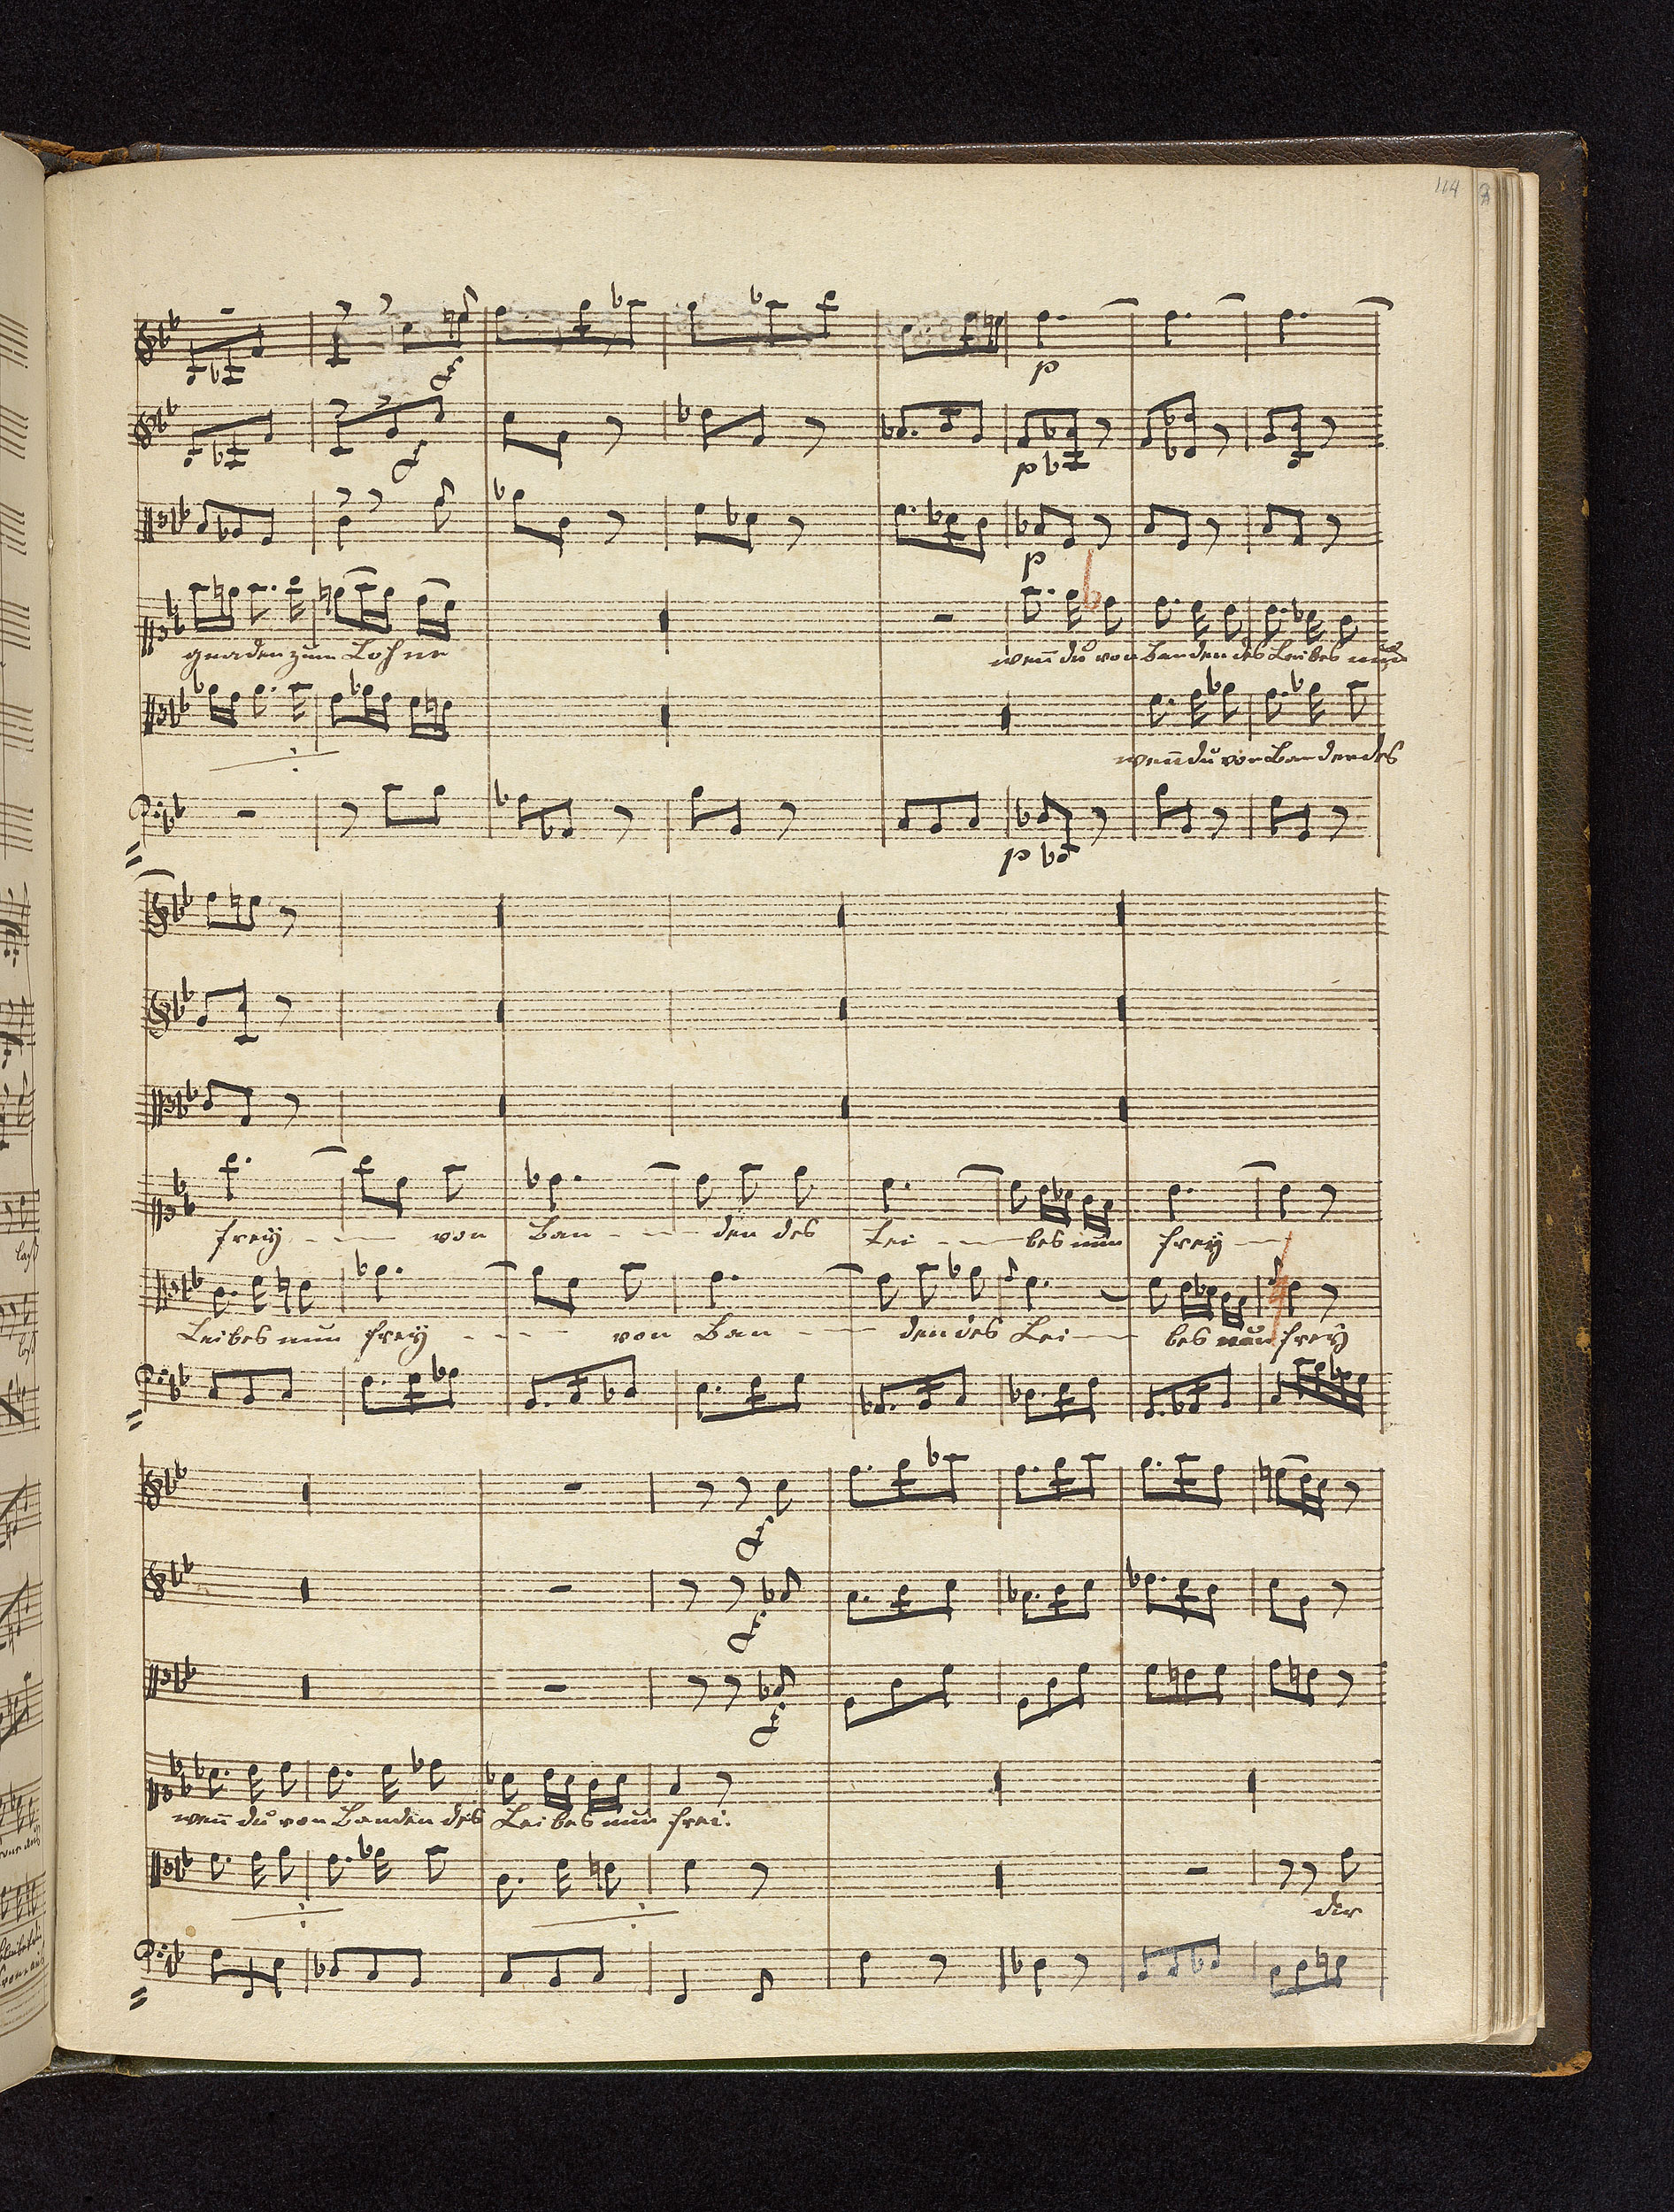 114
f
f
p
p
p
gnaden zum Lohne
wen̄ du von Banden des Leibes nun
wen̄ du von Banden des
p
frey von Ban den des Lei bes nun frey
Leibes nun frey von Ban den des Lei bes nun frey
f
f
f
wen̄ du von Banden des Leibes nun frei.
dir